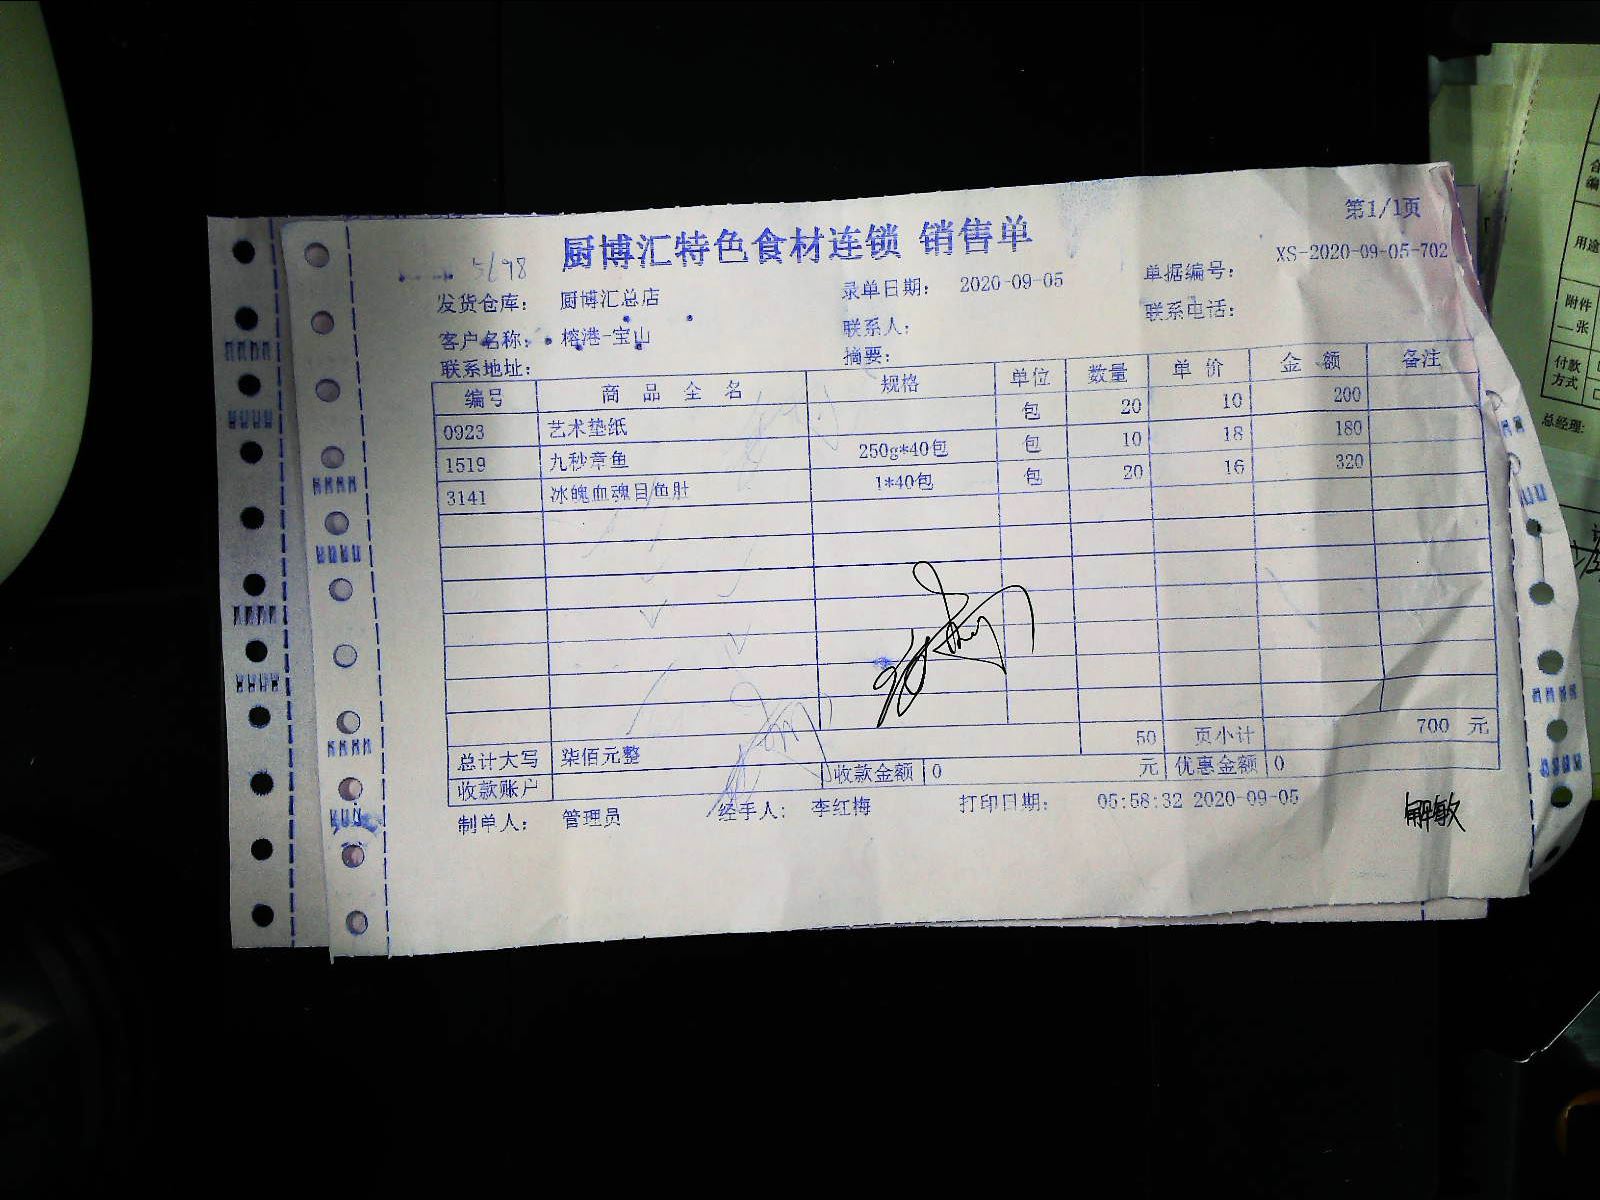 第1/1页
厨博汇特色食材连锁 销售单
5698
发货仓库: 厨博汇总店 录单日期: 2020-09-05 单据编号: XS-2020-09-05-702
客户名称: 榕港-宝山 联系人: 联系电话:
联系地址: 摘要:
编号 商品全名 规格 单位 数量 单价 金额 备注
0923 艺术垫纸 包 20 10 200
1519 九秒章鱼 250g*40包 包 10 18 180
3141 冰魄血魂目鱼肚 1*40包 包 20 16 320
总计大写 柒佰元整 50 页小计 700 元
收款账户 收款金额 0 元 优惠金额 0
制单人: 管理员 经手人: 李红梅 打印日期: 05:58:32 2020-09-05
解敏
用途
附件
一张
付款
方式
总经理: